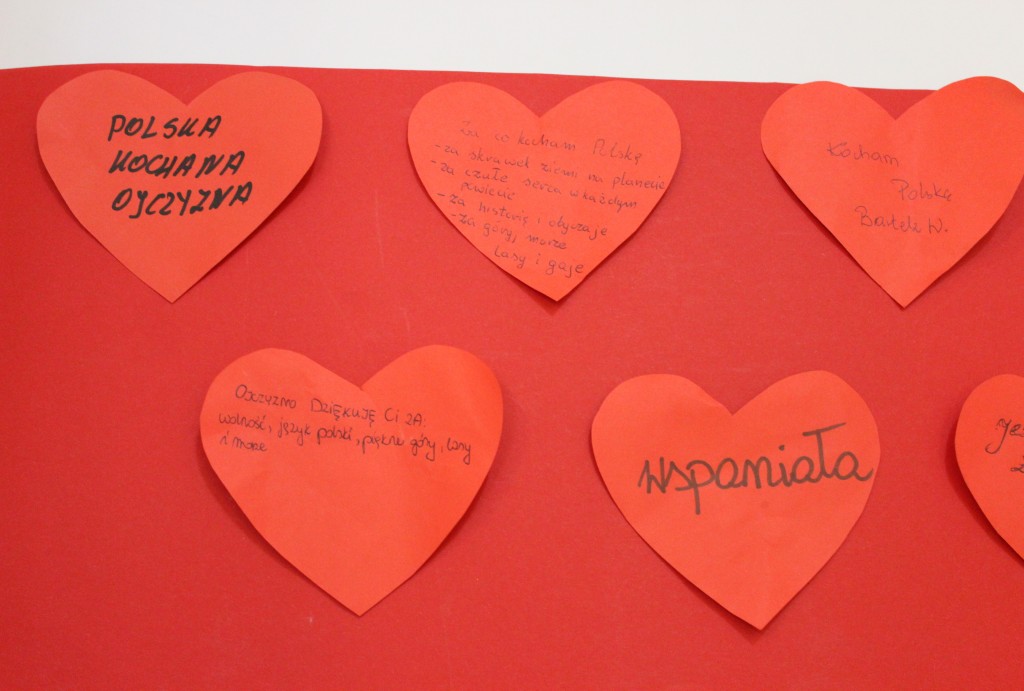 POLSKA
KOCHANA
OJCZYZNA
Za co kocham Polskę
- za skrawek ziemi na planecie
- za czułe serca w każdym
powiecie
- za historię i obyczaje
- za góry, morze
lasy i gaje
Kocham
Polskę
Bartek W.
Ojczyzno DZIĘKUJĘ Ci ZA:
wolność, język polski, piękne góry, lasy
i morze
wspaniała